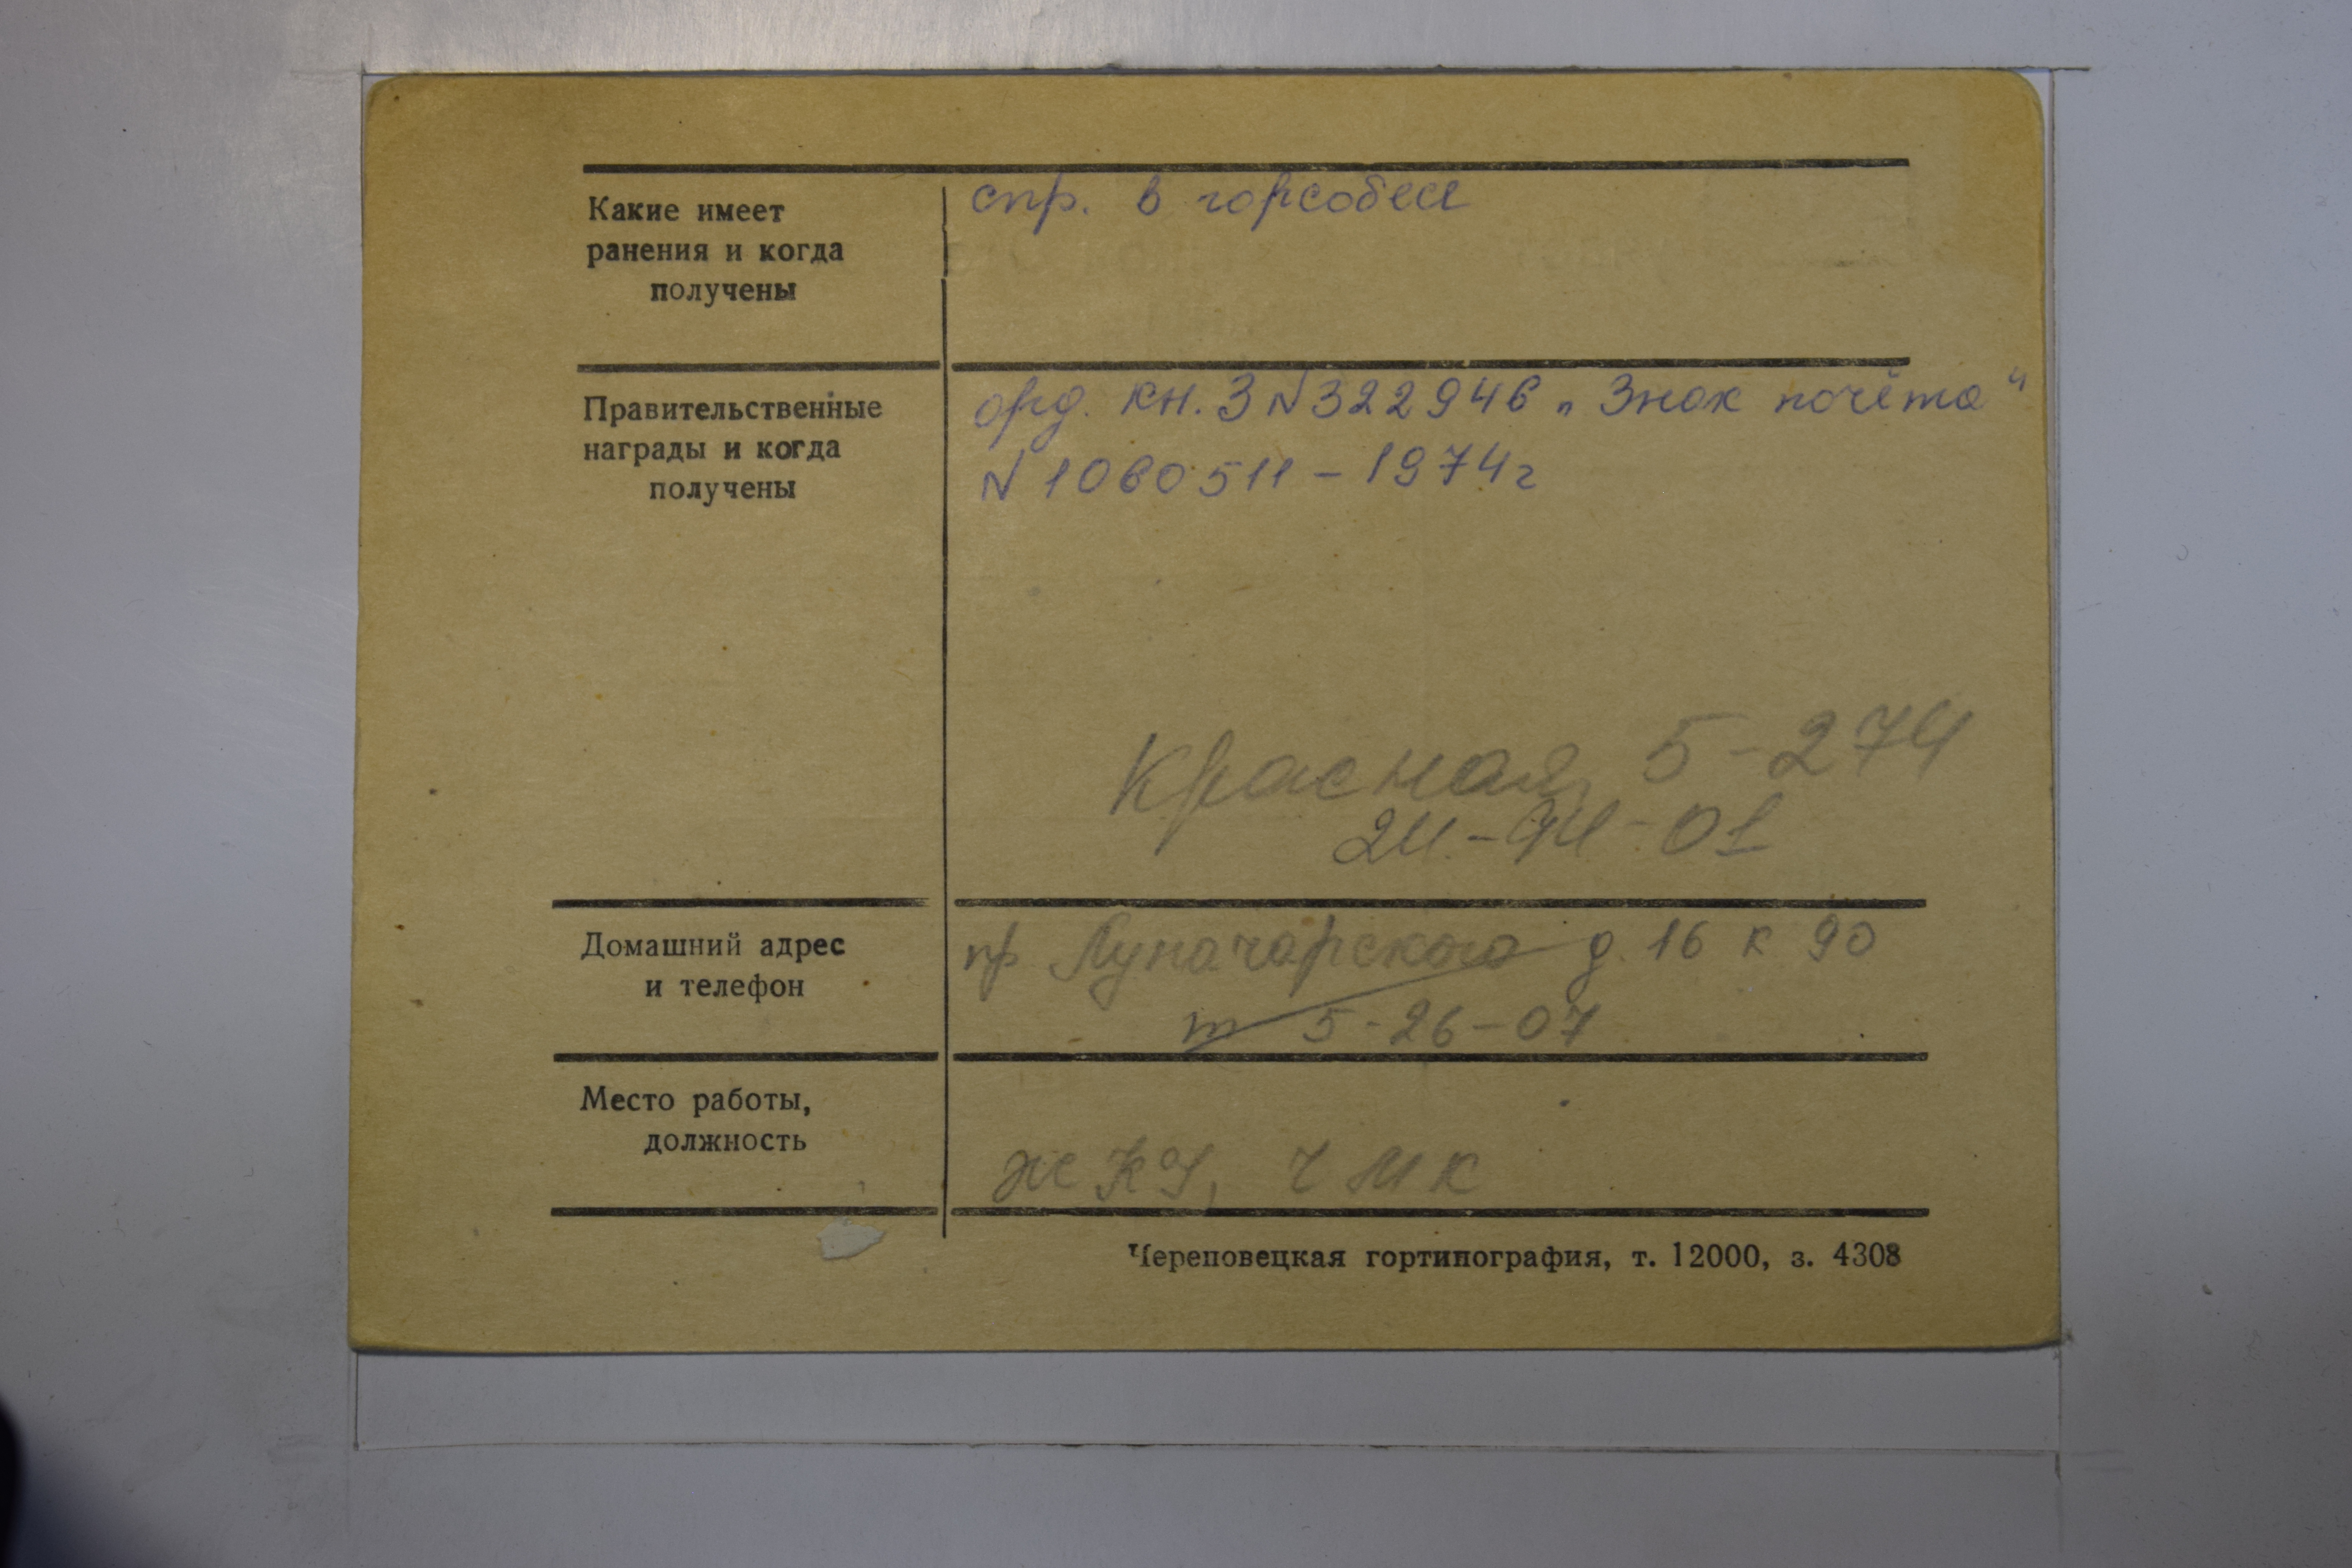 Какие имеет
ранения и когда
получены
спр. в горсобесе
Правительственные
награды и когда
получены
орд. кн. З №322946 „Знак почёта“
№1060511-1974г
Красная 5-274
24-94-01
Домашний адрес
и телефон
пр Луначарского д. 16 к 90
т 5-26-07
Место работы,
должность
ЖКУ, ЧМК
Череповецкая гортипография, т. 12000, з. 4308